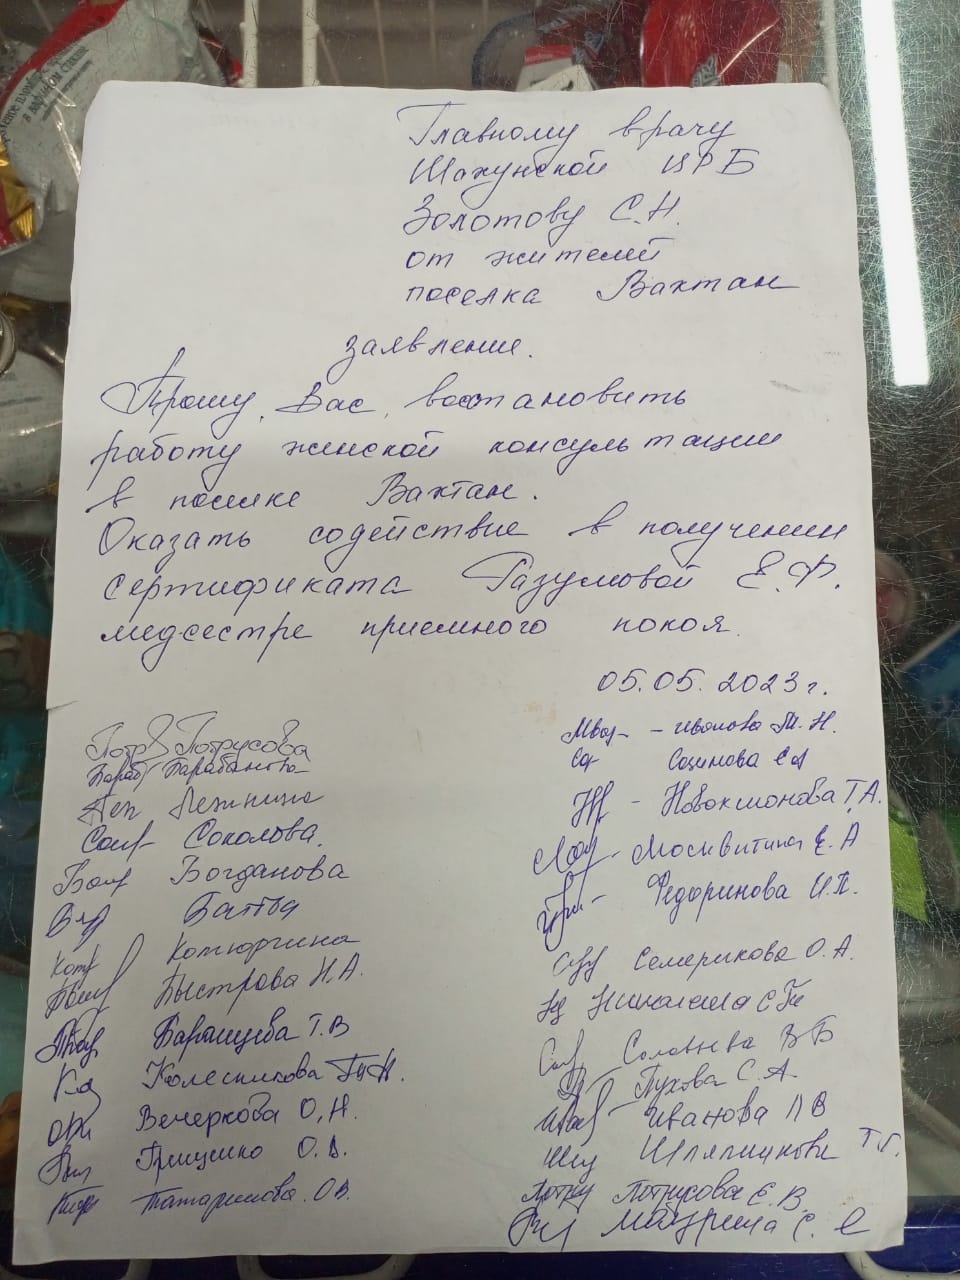 Главному врачу
Шахунской ЦРБ
Золотову С.Н.
от жителей
поселка Вахтан
заявление.
Прошу, Вас, восстановить
работу женской консультации
в поселке Вахтан.
Оказать содействие в получении
сертификата Разумовой Е.Ф.
медсестре приемного покоя.
05.05.2023 г.
Петрусова
Барабанова
Лежнина
Соколова.
Богданова
Котюргина
Быстрова Н.А.
Барышева Т.В
Колесникова
Вечеркова О,Н.
Грищенко О.В.
Татаринова. О.В.
Т. Н.
Новокшонова Т.А.
Москвитина Е.А
Федоринова И.П.
Семерикова О.А.
Соловьева В Б
Пухова С.А.
Иванова Л В
Шляпникова Т.Г.
Петрусова Е.В.